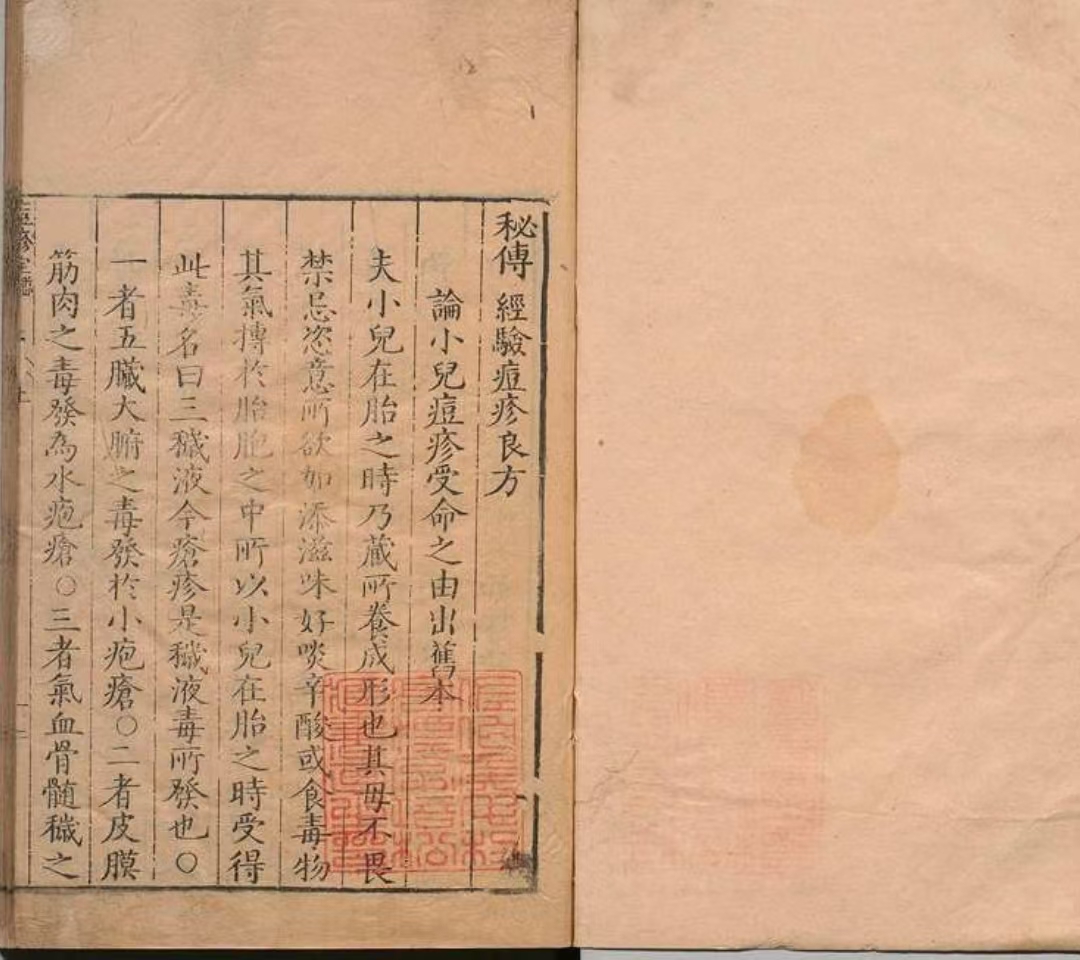 秘傳經驗痘疹良方
論小兒痘疹受命之由出舊本
夫小兒在胎之時乃蔵所養成形也其毋不畏
禁忌恣意所欲如添滋味好啖辛酸或食毒物
其氣摶於胎胞之中所以小兒在胎之時受得
此毒名曰三穢液今瘡疹是穢液毒所發也〇
一者五臟六腑之毒發於小疱瘡〇二者皮膜
筋肉之毒發為水疱瘡〇三者氣血骨髄穢之